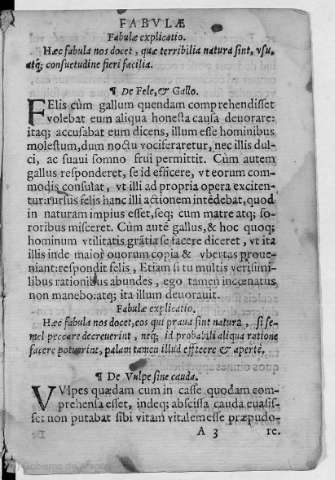 FABVLÆ
Fabulæ explicatio.
Hæc fabula nos docet, quæ terribilia natura sint, vsu,
atq; consuetudine fieri facilia.
¶ De Fele, & Gallo.
FElis cùm gallum quendam comprehendisset
volebat eum aliqua honesta causa deuorare:
itaq; accusabat eum dicens, illum esse hominibus
molestum, dum noctu vociferaretur, nec illis dul-
ci, ac suaui somno frui permittit. Cùm autem
gallus responderet, se id efficere, vt eorum com-
modis consulat, vt illi ad propria opera exciten-
tur: rursus felis hanc illi actionem intēdebat, quod
in naturam impius esset, seq; cum matre atq; so-
roribus misceret. Cùm autē gallus, & hoc quoq;
hominum vtilitatis grātia se facere diceret, vt ita
illis inde maior ouorum copia & vbertas proue-
niant: respondit felis, Etiam si tu multis verisimi-
libus rationibus abundes, ego tamen incœnatus
non manebo: atq; ita illum deuorauit.
Fabulæ explicatio.
Hæc fabula nos docet, eos qui praua sint natura, si se-
mel peccare decreuerint, neq; id probabili aliqua ratione
facere potuerint, palam tamen illud efficere & apertè.
¶ De Vulpe sine cauda.
VVlpes quædam cum in casse quodam com-
prehensa esset, indeq; abscissa cauda euasis-
set non putabat sibi vitam vitalem esse præpudo-
A 3 re.